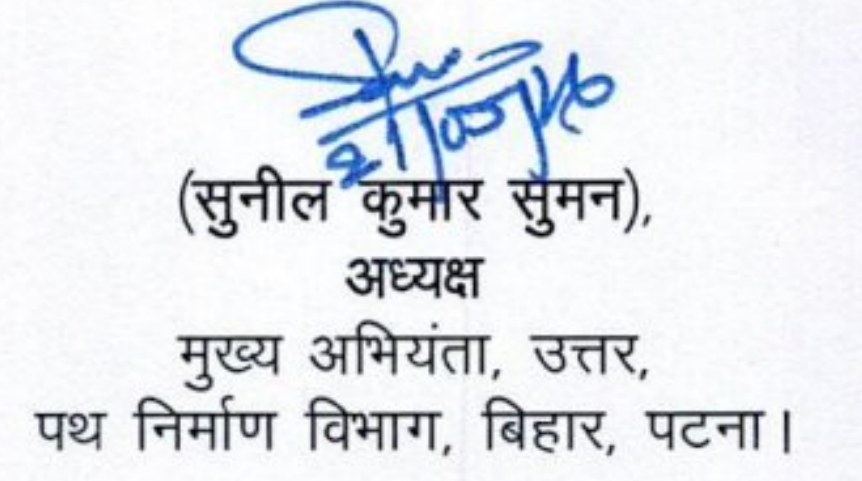 21/05/26
(सुनील कुमार सुमन),
अध्यक्ष
मुख्य अभियंता, उत्तर,
पथ निर्माण विभाग, बिहार, पटना।